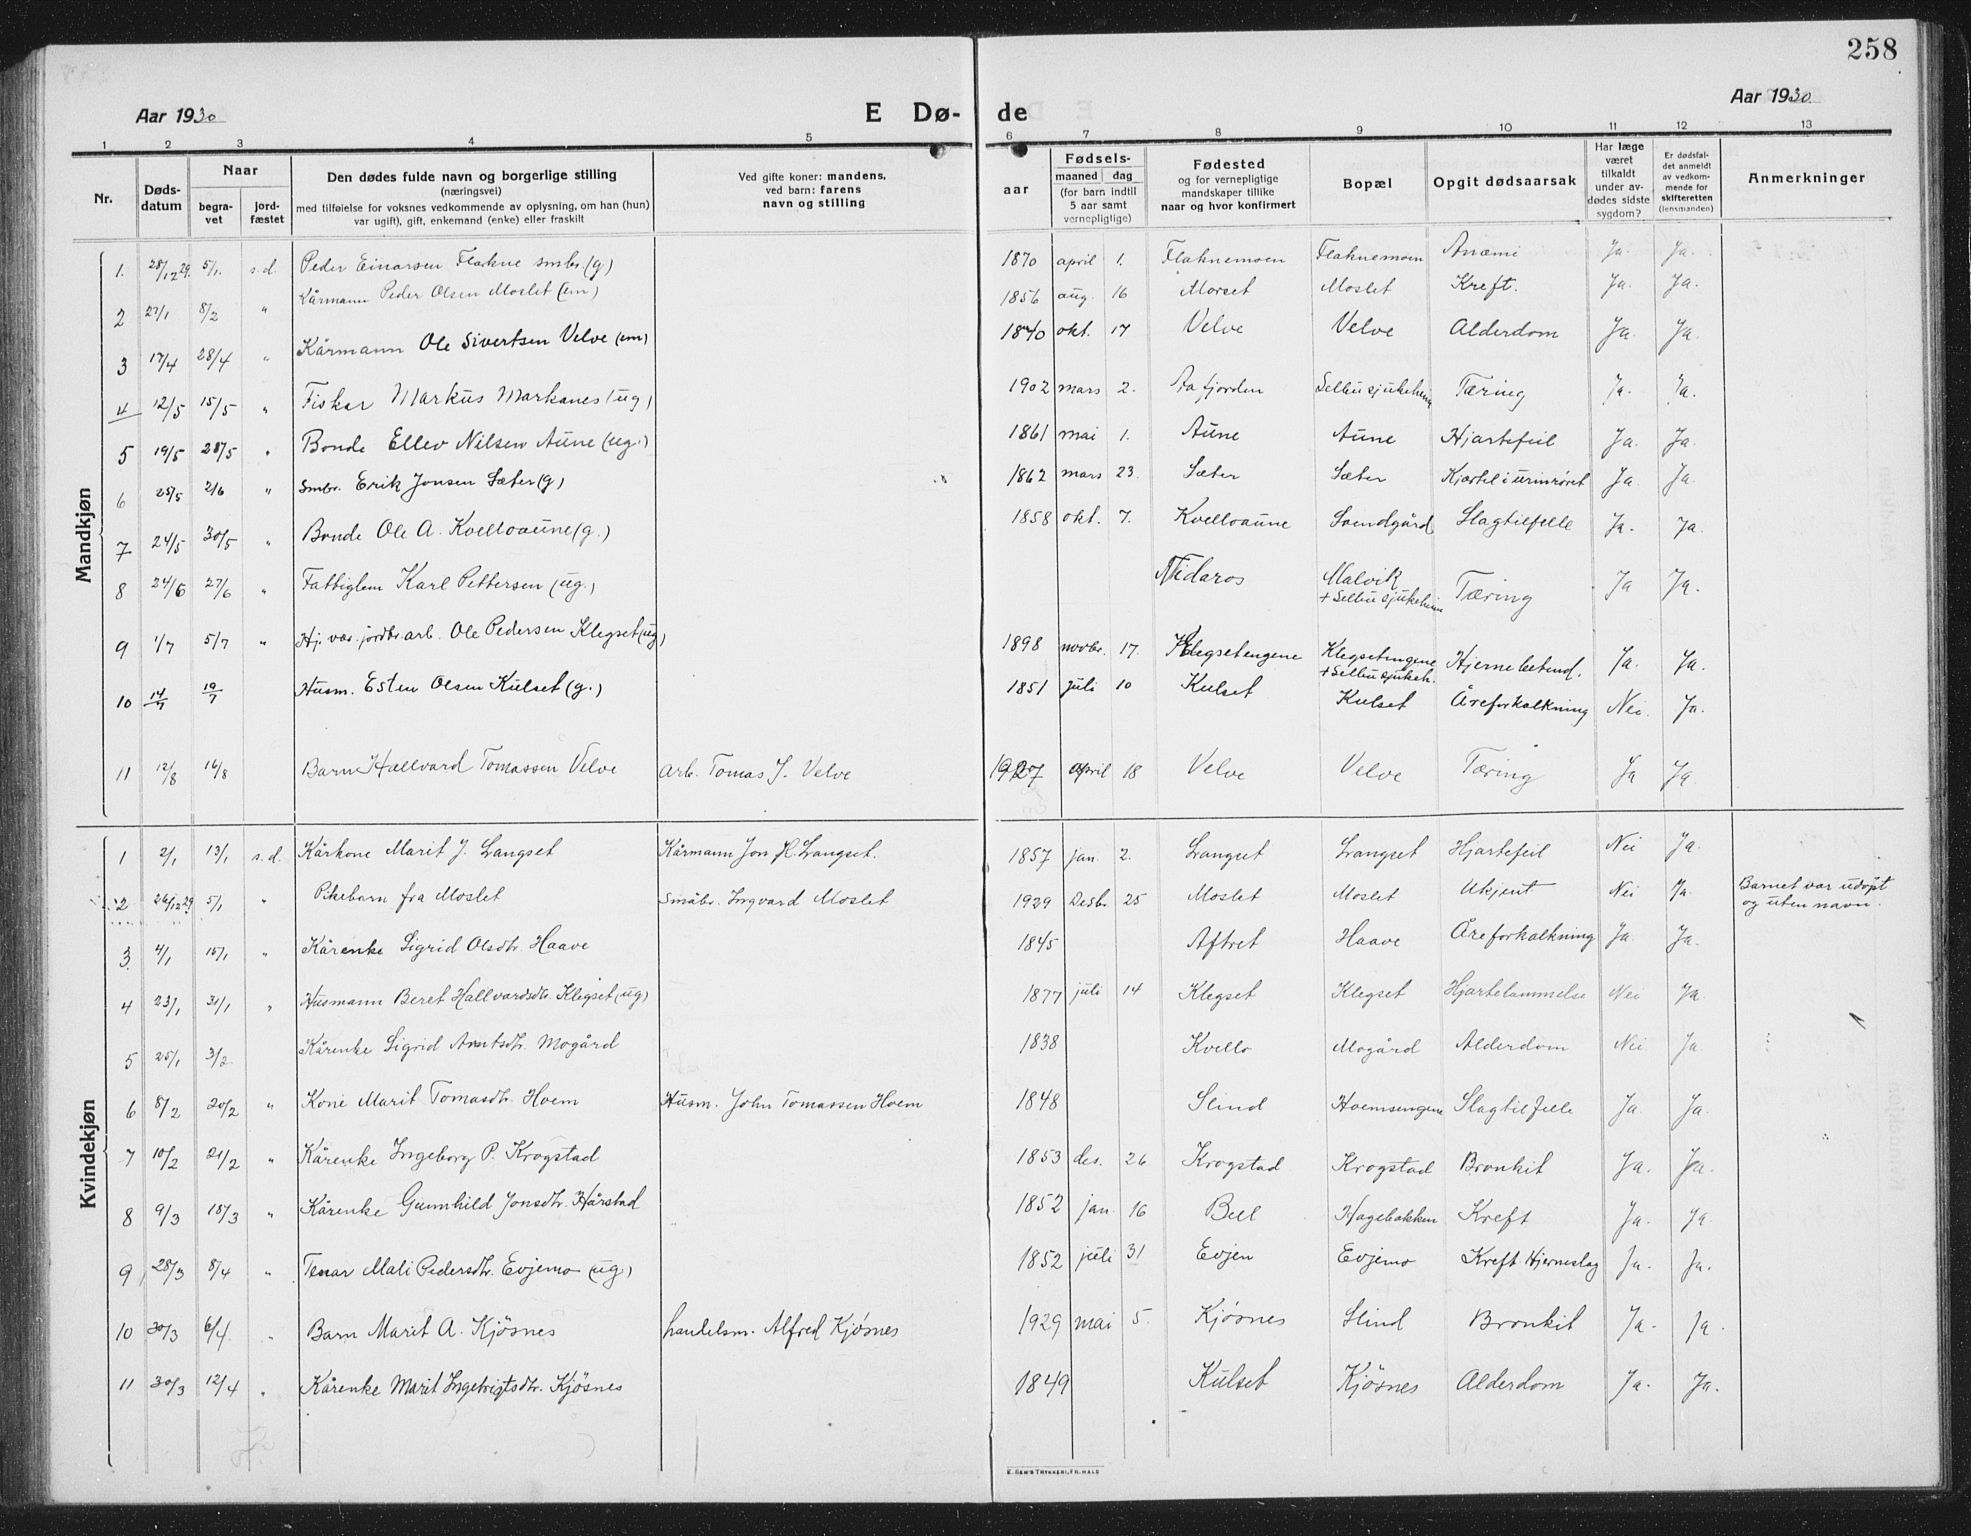 258
Aar 1930
E Dø- de
Aar 1930
1 2 3 4 5 6 7 8 9 10 11 12 13
Nr.
Døds-
datum
Naar
begra-
vet
jord-
fæstet
Den dødes fulde navn og borgerlige stilling
(næringsvei)
med tilføielse for voksnes vedkommende av oplysning, om han (hun)
var ugift), gift, enkemand (enke) eller fraskilt
Ved gifte koner: mandens,
ved barn: farens
navn og stilling
Fødsels-
aar
maaned
dag
(for barn indtil
5 aar samt
vernepligtige)
Fødested
og for vernepligtige
mandskaper tillike
naar og hvor konfirmert
Bopæl
Opgit dødsaarsak
Har læge
været
tilkaldt
under av-
dødes sidste
sygdom?
Er dødsfal-
det anmeldt
av vedkom-
mende for
skifteretten
(lensmanden)
Anmerkninger
Mandkjøn
1. 28/12 29. 5/1. s.d. Peder Einarsen Flakne smbr. (g) 1870 april 1. Flaknemoen Flaknemoen Anæmi Ja. Ja.
2 27/1 8/2 " Kårmann Peder Olsen Moslet (em) 1856 aug. 16 Morset Moslet Kreft. Ja. Ja.
3 17/4 28/4 " Kårmann Ole Sivertsen Velve (em) 1840 okt. 17 Velve Velve Alderdom Ja. Ja.
4 12/5 15/5 " Fiskar Markus Markanes (ug) 1902 mars 2. Aafjorden Selbu sjukeheim Tæring Ja. Ja.
5 19/5 28/5 " Bonde Ellev Nilsen Aune (ug.) 1861 mai 1. Aune Aune Hjartefeil Ja. Ja.
6 25/5 2/6 " Smbr. Erik Jonsen Sæter (g) 1862 mars 23. Sæter Sæter Kjærtel i urinrøret Ja. Ja.
7 24/5 30/5 " Bonde Ole A. Kvelloaune (g.) 1858 okt. 7. Kvelloaune Svendgård Slagtilfelle Ja. Ja.
8 24/6 27/6 " Fattiglem Karl Pettersen (ug.) Nidaros Malvik
+ Selbu sjukeheim Tæring Ja Ja.
9 1/7 5/7 " Hj. var. jordbr.arb. Ole Pedersen Klegset (ug) 1898 novbr. 17. Klegsetengene Klegsetengene
+ Selbu sjukeh. Hjernebetend. Ja. Ja.
10 14/7 19/7 Husm. Esten Olsen Kulset (g.) 1851 juli 10 Kulset Kulset Åreforkalkning Nei. Ja.
11 12/8 16/8 Barn Hallvard Tomassen Velve Arb. Tomas J. Velve 1927 april 18 Velve Velve Tæring Ja Ja
Kvindekjøn
1 2/1 13/1 s.d. Kårkone Marit J. Langset Kårmann Jon H. Langset. 1857 jan. 2. Langset Langset Hjartefeil Nei Ja.
2 26/12 29. 5/1 " Pikebarn fra Moslet Småbr. Ingvard Moslet 1929 Desbr. 25 Moslet Moslet Ukjent Nei Ja. Barnet var udøpt
og uten navn.
3. 4/1 15/1 " Kårenke Sigrid Olsdtr. Haave 1845 Aftret Haave Åreforkalkning Ja. Ja.
4 23/1 31/1 " Husmann Beret Hallvardsdtr. Klegset (ug) 1877 juli 14 Klegset Klegset Hjartelammelse Nei Ja.
5 25/1 3/2. Kårenke Sigrid Arntsdtr. Mogård 1838 Kvello Mogård Alderdom Nei Ja.
6 8/2 20/2 " Kone Marit Tomasdtr. Hoem Husm. John Tomassen Hoem 1848 Slind Hoemsengene Slagtilfelle Ja. Ja.
7 10/2 21/2 " Kårenke Ingeborg P. Krogstad 1853 des. 26 Krogstad Krogstad Bronkit Ja. Ja.
8 9/3 18/3 " Kårenke Gunnhild Jonsdtr. Hårstad 1852 jan. 16 Bell Hagebakken Kreft Ja. Ja.
9 28/3 8/4 " Tenar Mali Pedersdtr. Evjemo (ug) 1852 juli 31 Evjen Evjemo Kreft Hjerneslag Ja. Ja.
10 30/3 6/4. " Barn Marit A. Kjøsnes handelsm. Alfred Kjøsnes 1929 mai 5. Kjøsnes Slind Bronkit Ja. Ja.
11 30/3 12/4 " Kårenke Marit Ingebrigtsdtr. Kjøsnes 1849 Kulset Kjøsnes Alderdom Ja. Ja.
E. SEM'S TRYKKERI, FR.HALD